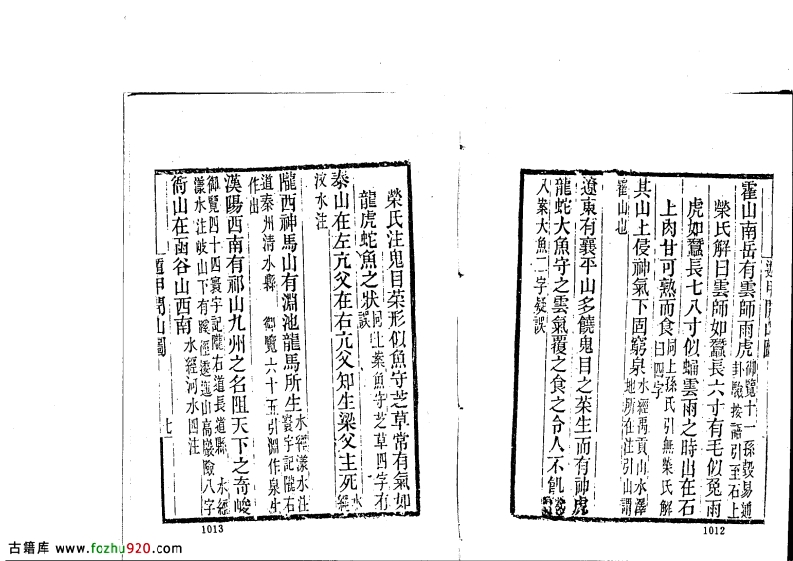 霍山南岳有雲師雨虎 御覽十一孫瑴易通卦驗按語引至石上
榮氏解曰雲師如蠶長六寸有毛似兔雨
虎如蠶長七八寸似蛹雲雨之時出在石
上肉甘可熟而食 同上孫氏引無榮氏解曰四字
其山上侵神氣下固窮泉 水經禹貢山水澤地所在注引山謂
霍山也
遼東有襄平山多饒鬼目之菜生而有神虎
龍蛇大魚守之雲氣覆之食之令人不飢
入案大魚二字疑誤
遁甲開山圖
1012
榮氏注鬼目菜形似魚守芝草常有氣如
龍虎蛇魚之狀 同上案魚守芝草四字有誤
泰山在左亢父在右亢父知生梁父主死 水經
汶水注
隴西神馬山有淵池龍馬所生 水經漾水注寰宇記隴右
道秦州清水縣 御覽六十五引淵作泉生
作出
漢陽西南有祁山九州之名阻天下之奇峻
御覽四十四寰宇記隴右道長道縣 水經
漾水注岐山下有蹊徑逶迤山高巖險八字
衙山在函谷山西南 水經河水四注
遁甲開山圖
七
1013
古籍库 www.fozhu920.com